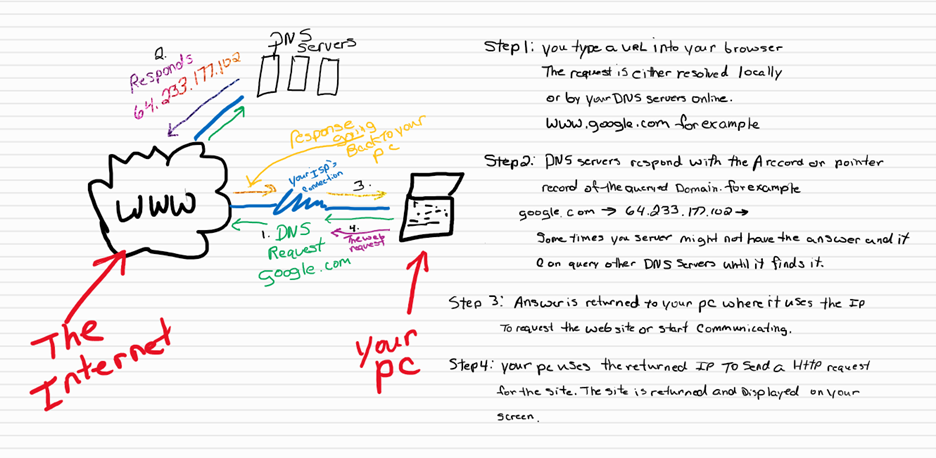 DNS
Servers
2.
Responds
64.233.177.102
Response
going
Back to your
pc
your Isp's
connection
3.
WWW
1.
DNS
Request
google.com
4.
The web
request
The
Internet
your
pc
Step 1: you type a URL into your browser
The request is either resolved locally
or by your DNS servers online.
www.google.com for example
Step 2: DNS servers respond with the A record or pointer
record of the queried Domain. for example
google.com → 64.233.177.102 →
Some times you server might not have the answer and it
can query other DNS servers until it finds it.
Step 3: Answer is returned to your pc where it uses the IP
To request the website or start communicating.
Step 4: your pc uses the returned IP To Send a Http request
for the site. The site is returned and Displayed on your
screen.